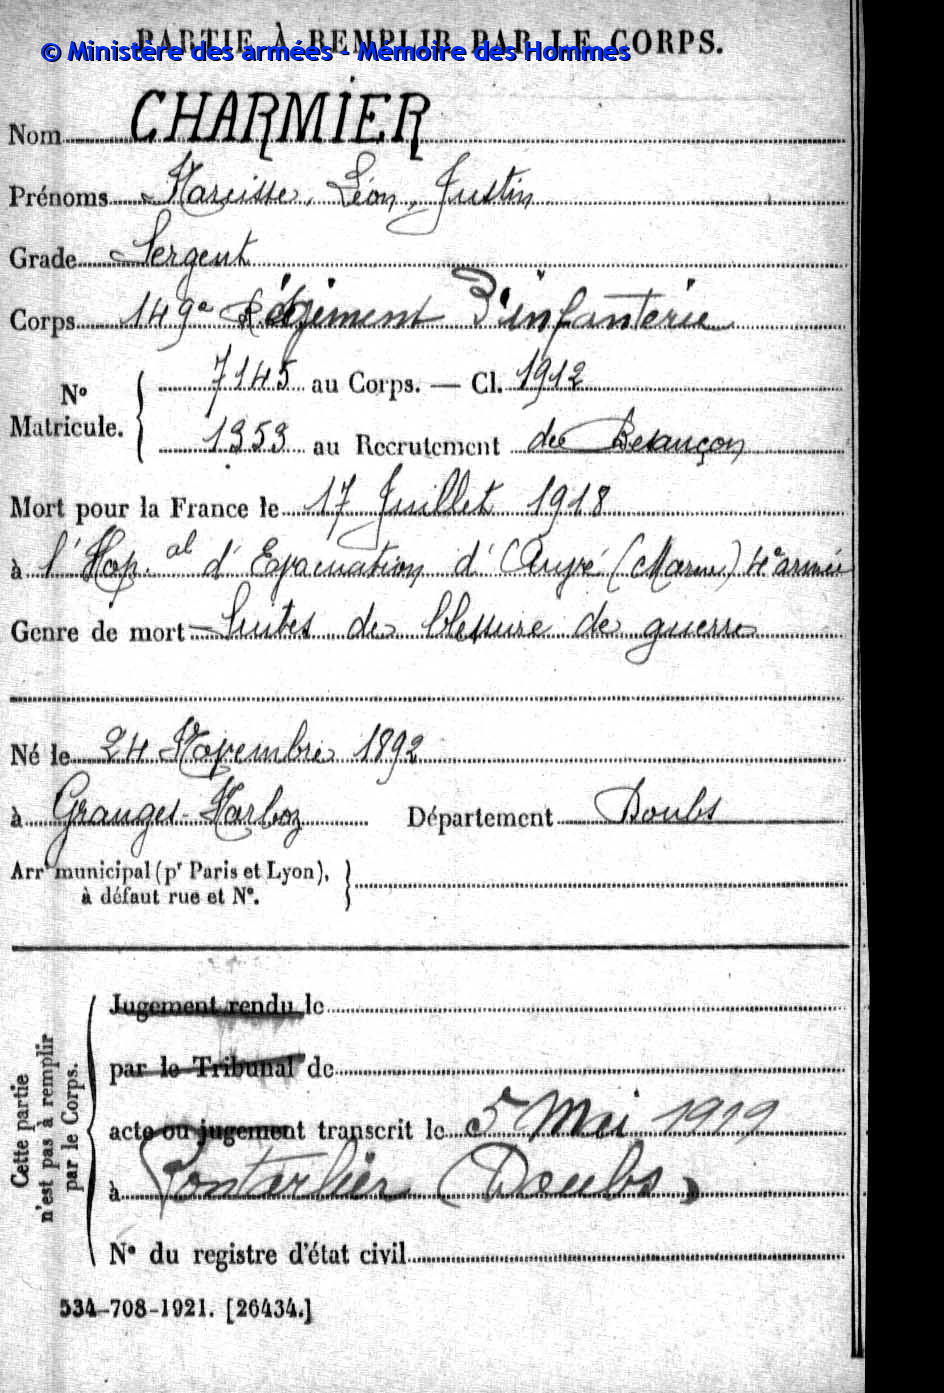 PARTIE À REMPLIR PAR LE CORPS.
© Ministère des armées - Mémoire des Hommes
Nom CHARMIER
Prénoms Narcisse, Léon, Justin
Grade Sergent
Corps 149e Régiment D'infanterie
No Matricule. 7145 au Corps. — Cl. 1912
1353 au Recrutement de Besançon
Mort pour la France le 17 Juillet 1918
à l'Hop.al d'Evacuation d' (Marne) 4e armée
Genre de mort Suites de blessure de guerre
Né le 24 Novembre 1892
à Granges-Narboz Département Doubs
Arrt municipal (pr Paris et Lyon),
à défaut rue et No.
Cette partie
n'est pas à remplir
par le Corps.
Jugement rendu le
par le Tribunal de
acte ou jugement transcrit le 5 Mai 1919
à Pontarlier (Doubs)
No du registre d'état civil
534-708-1921. [26434.]